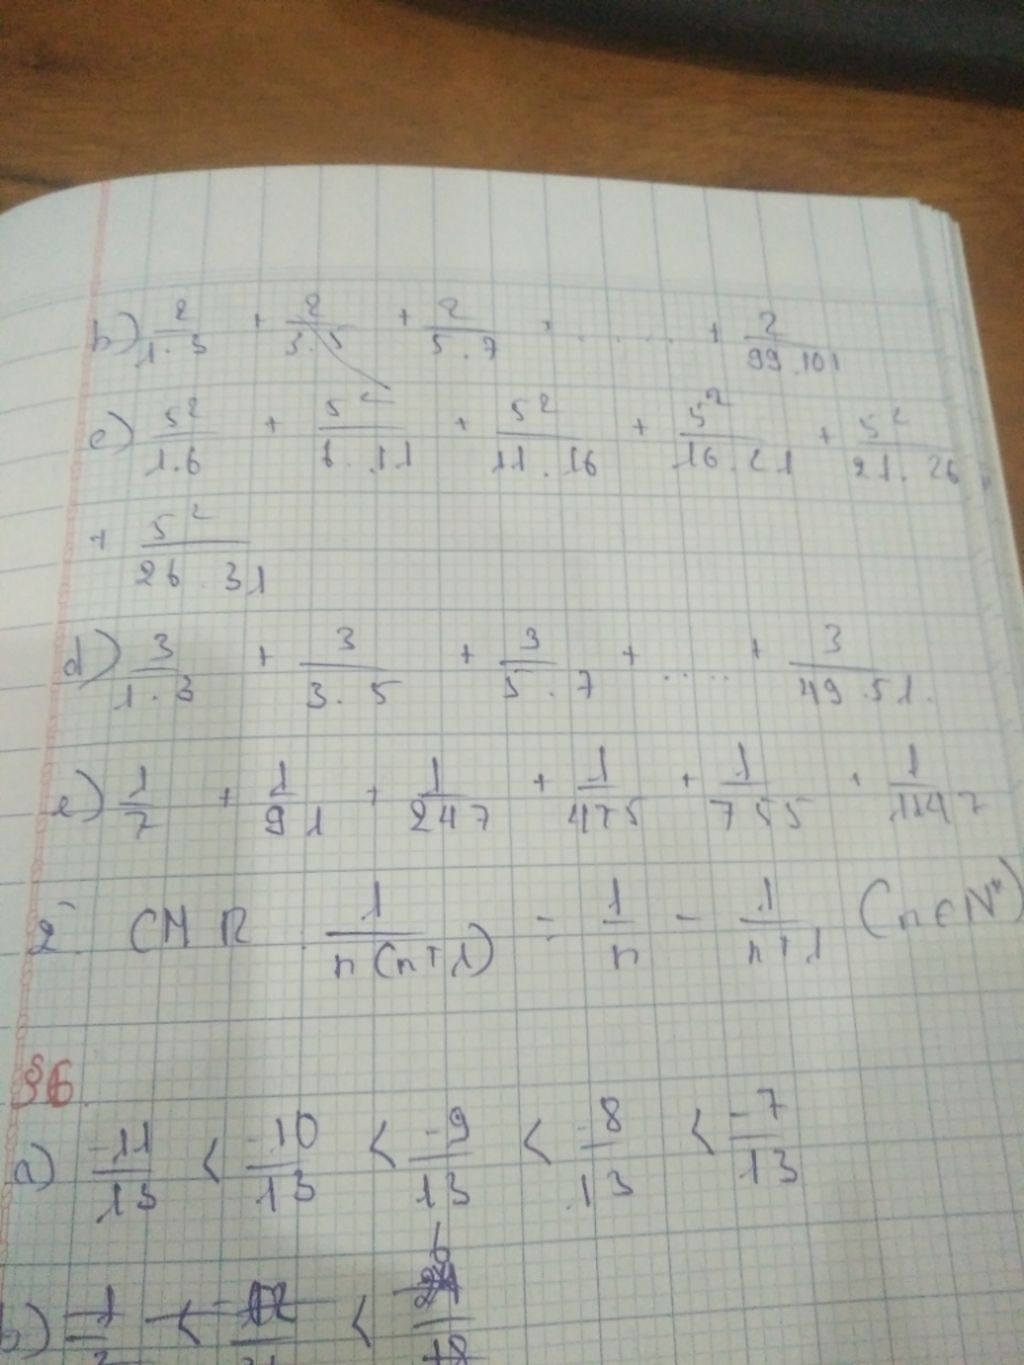 b) 2/1.3 + 2/3.5 + 2/5.7 + ..... + 2/99.101
c) 5²/1.6 + 5²/6.11 + 5²/11.16 + 5²/16.21 + 5²/21.26
+ 5²/26.31
d) 3/1.3 + 3/3.5 + 3/5.7 + ..... + 3/49.51.
e) 1/7 + 1/91 + 1/247 + 1/475 + 1/755 + 1/1147
2. CMR 1/n(n+1) = 1/n - 1/n+1 (n∈N*)
§6
a) -11/13 < -10/13 < -9/13 < -8/13 < -7/13
b)